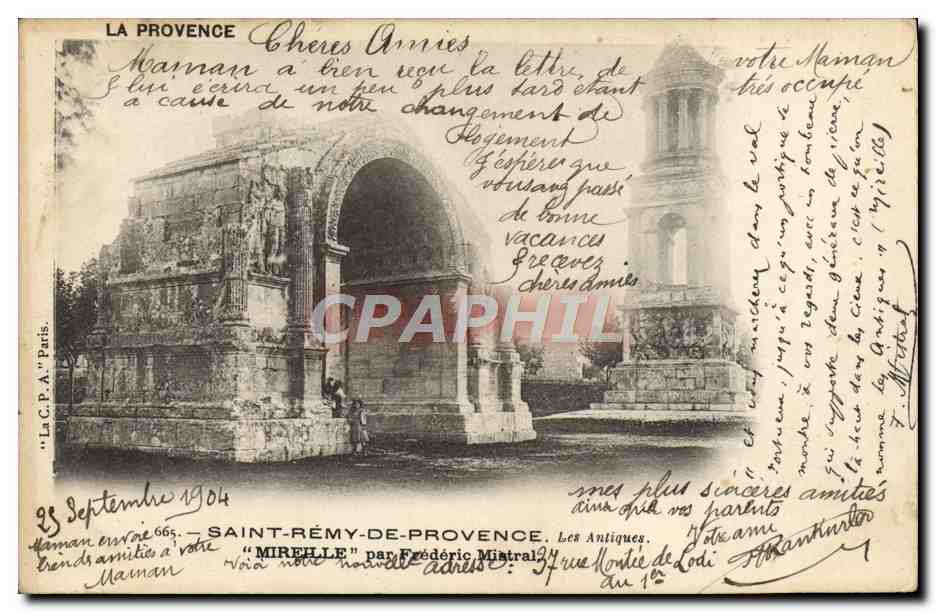 LA PROVENCE
Chères Amies
Maman a bien reçu la lettre de votre Maman
& lui écrira un peu plus tard étant très occupé
a cause de notre changement de
logement
J'espère que
vous avez passé
de bonne
vacances
& recevez
chères amies
mes plus sincères amitiés
ainsi que vos parents
Votre amie
25 Septembre 1904
Maman envoie
tends amitiés à votre
Maman
665. — SAINT-RÉMY-DE-PROVENCE. Les Antiques.
"MIREILLE" par Frédéric Mistral
Voià notre nouvelle adresse: 37 rue Montée de Lodi
au 1er
et marcher dans le val
tortueux jusqu'à ce qu'un portique se
montre à vos regards, avec un tombeau
qui supporte deux généraux de pierre,
là-haut dans les cieux: c'est ce qu'on
nomme les Antiques" (Mireille)
F. Mistral
"La C. P. A." Paris.
CPAPHIL